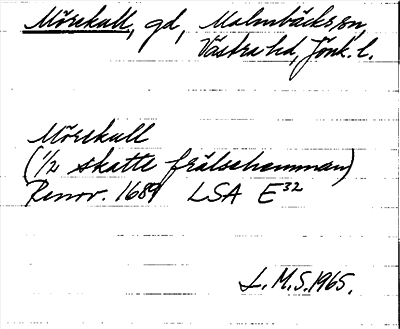 Mörekull, gd, Malmbäcks sn,
Västra hd, Jönk. l.
Mörekull
(1/2 skatte frälsehemman)
Renov. 1689 LSA E32
L. M. S. 1965.